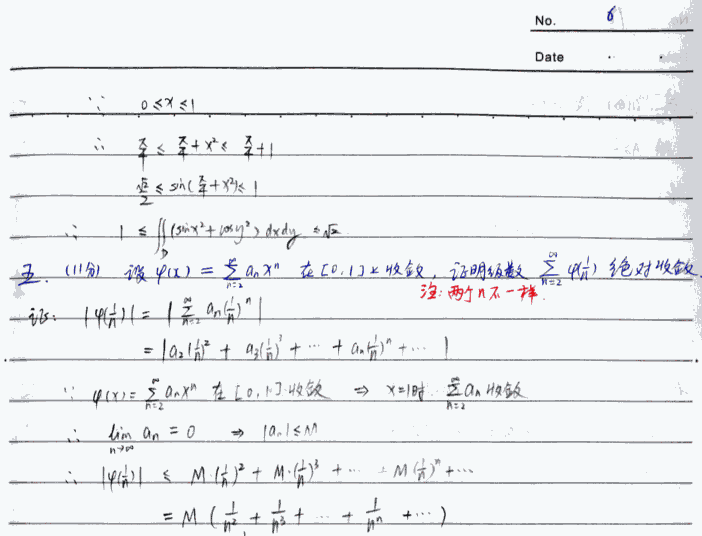 No. 6
Date
∵ 0≤x≤1
∴ π/4 ≤ π/4 + x² ≤ π/4 + 1
√2/2 ≤ sin(π/4 + x²) ≤ 1
∴ 1 ≤ ∬_D (sinx² + cosy²) dxdy ≤ √2
五. (11分) 设 φ(x) = ∑_{n=2}^∞ aₙxⁿ 在[0,1]上收敛, 证明级数 ∑_{n=2}^∞ φ(1/n) 绝对收敛.
注: 两个n不一样.
证: |φ(1/n)| = |∑_{n=2}^∞ aₙ(1/n)ⁿ|
= |a₂(1/n)² + a₃(1/n)³ + ⋯ + aₙ(1/n)ⁿ + ⋯|
∵ φ(x) = ∑_{n=2}^∞ aₙxⁿ 在[0,1]收敛 ⇒ x=1时 ∑_{n=2}^∞ aₙ收敛
∴ lim_{n→∞} aₙ = 0 ⇒ |aₙ| ≤ M
∴ |φ(1/n)| ≤ M·(1/n)² + M·(1/n)³ + ⋯ + M(1/n)ⁿ + ⋯
= M(1/n² + 1/n³ + ⋯ + 1/nⁿ + ⋯)